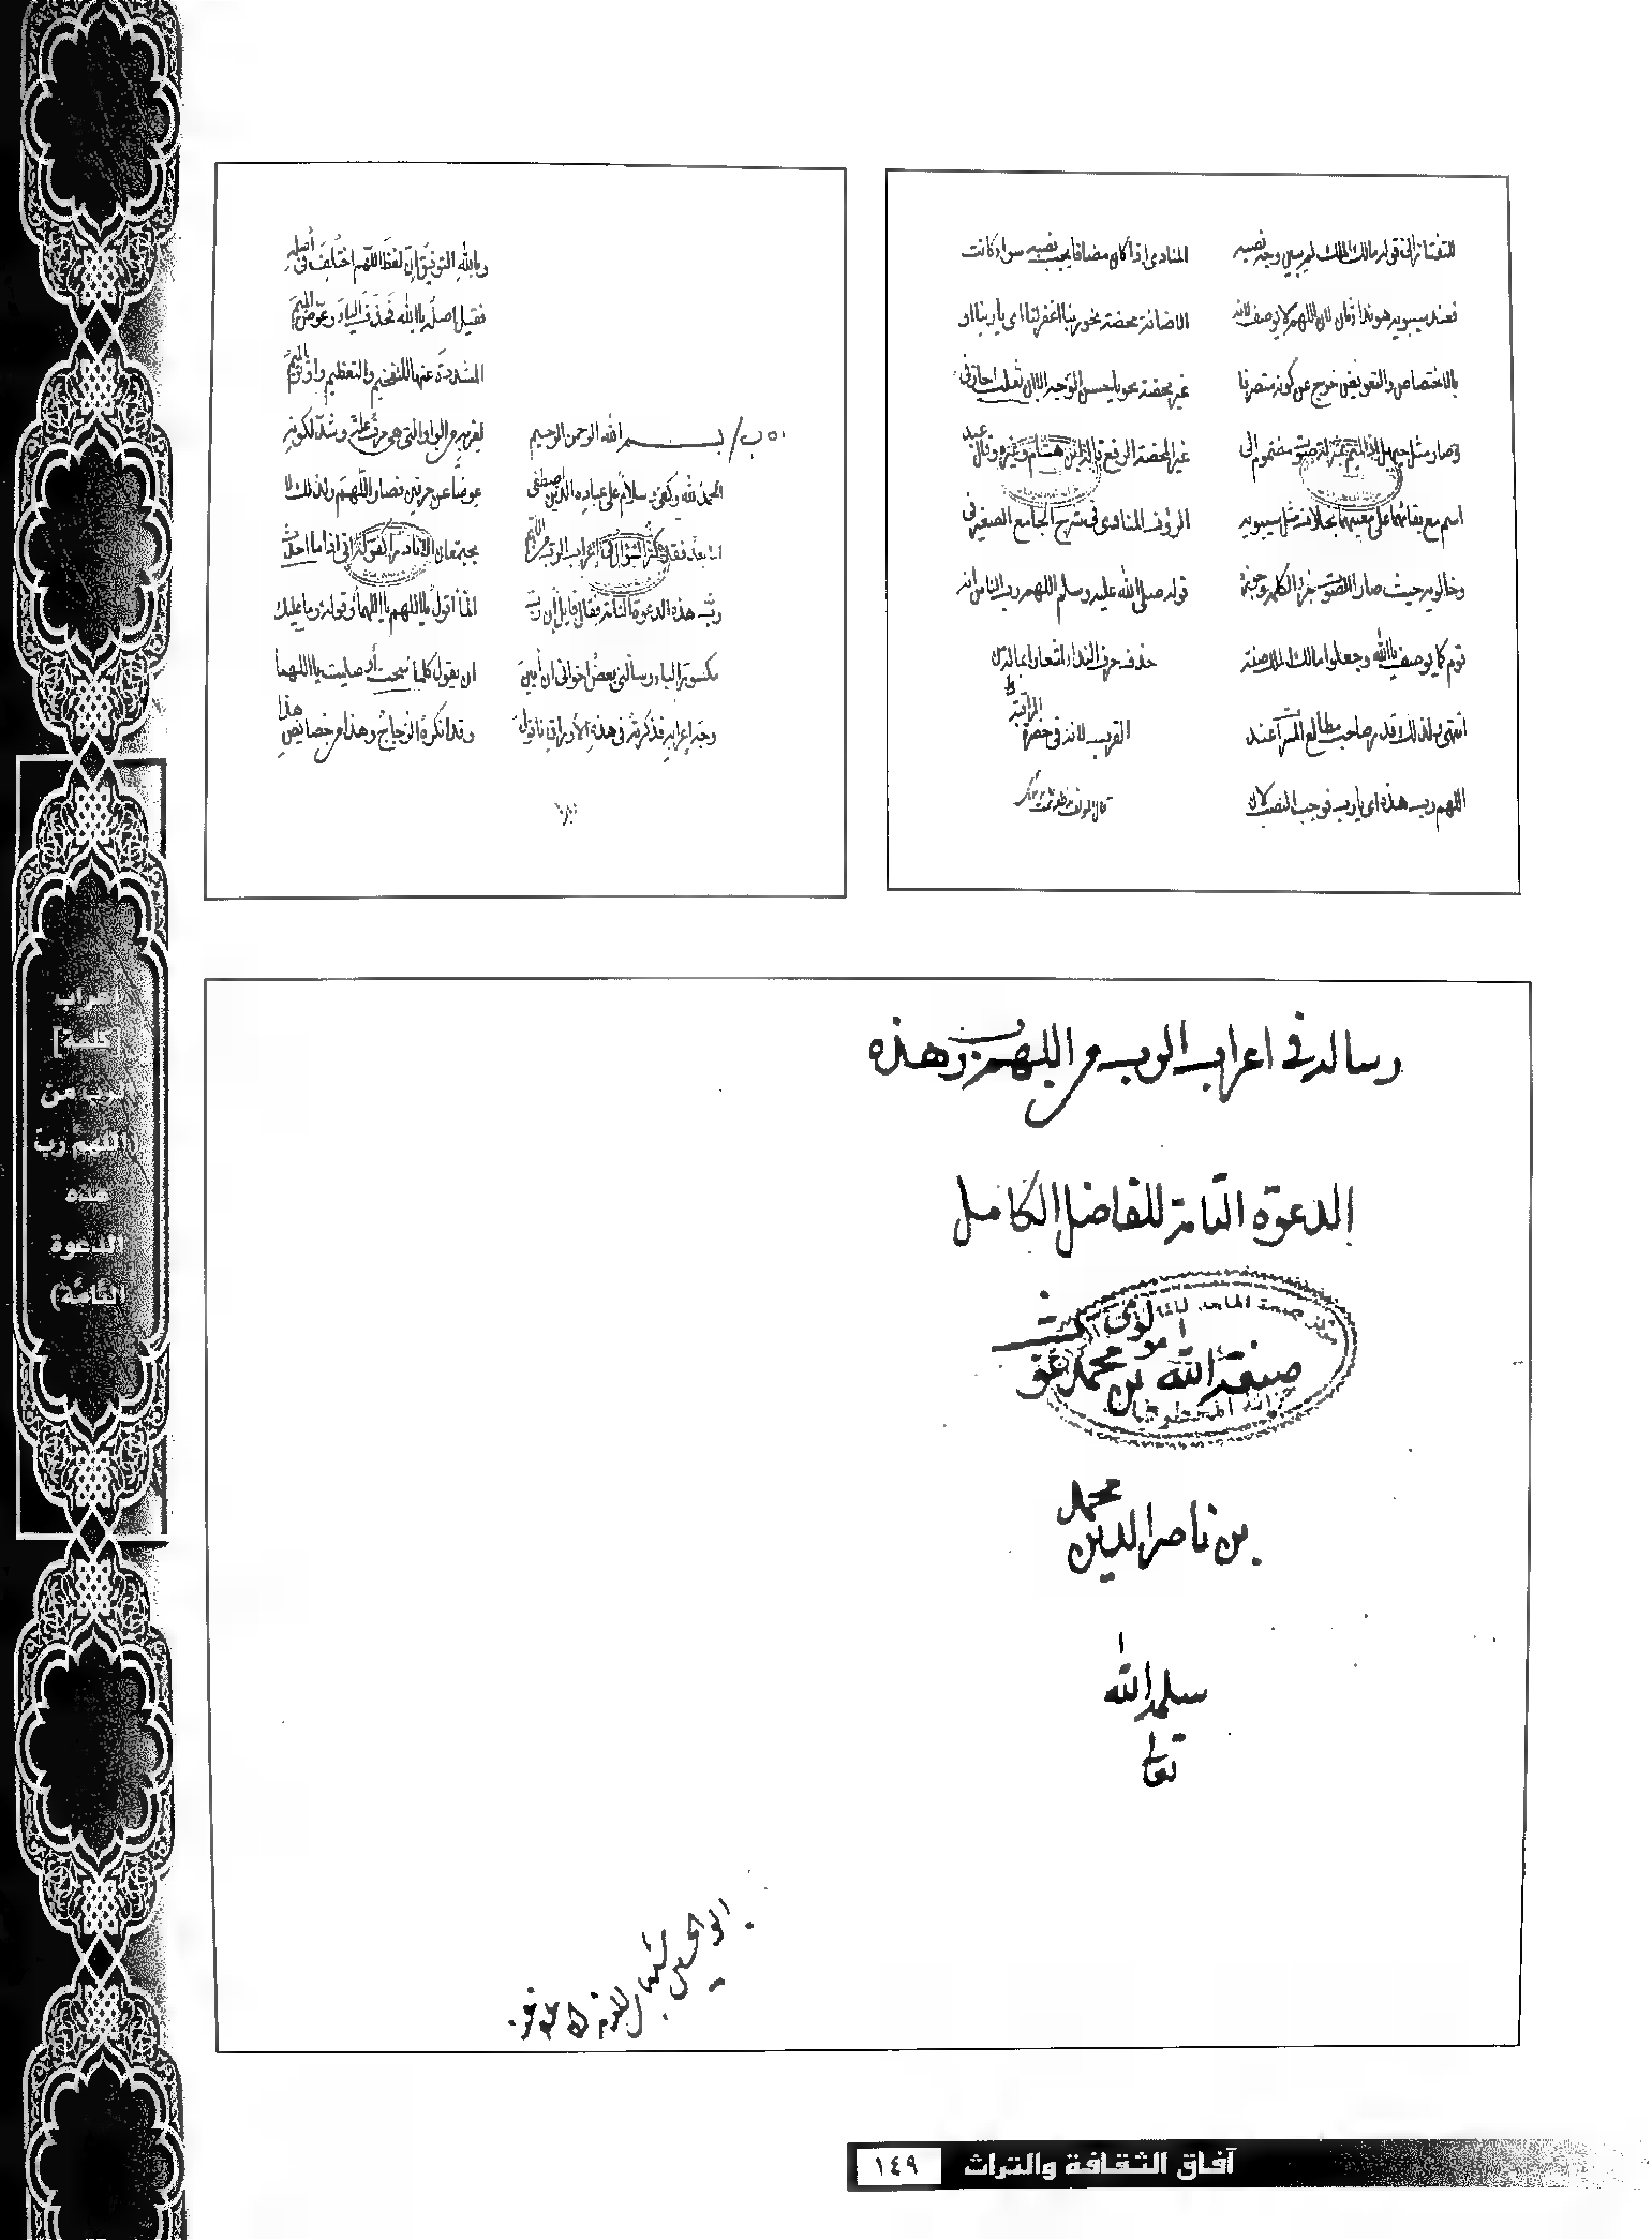 للتفتازاني قوله مالك الملك لم يبين وجه نصبه
فعند سيبويه هو نداء ثان لان اللهم لا يوصف لانه
بالاختصاص والتعويض خرج عن كونه متصرفا
وصار مثل حيهل اذ الميم بمنزلة صوت مضموم الى
اسم مع بقائهما على معنييهما بخلاف مثل سيبويه
وخالويه حيث صار الصوت جزء الكلمة وجوزه
قوم كما يوصف يا الله وجعلوا مالك الملك صفة
انتهى ولذلك قدر صاحب مطالع المسرات عند
اللهم رب هذه اى يا رب فوجب النصب لان
المنادى اذا كان مضافا يجب نصبه سواء كانت
الاضافة محضة نحو ربنا اغفر لنا اى يا ربنا او
غير محضة نحو يا حسن الوجه الا ان ثعلب اجاز فى
غير المحضة الرفع قاله ابن هشام وغيره وقال عبد
الرؤف المناوى فى شرح الجامع الصغير فى
قوله صلى الله عليه وسلم اللهم رب الناس انه
حذف حرف النداء اشعارا بما له من
القرب لانه فى حضرة المراقبة
بســـم الله الرحمن الرحيم
الحمد لله وكفى وسلام على عباده الذين اصطفى
اما بعد فقد كثر السؤال فى إعراب الرب من اللهم
رب هذه الدعوة التامة فقال قايل إن رب
مكسورة الباء وسألنى بعض اخوانى ان أبين
وجه إعرابه فذكرته فى هذه الأوراق فاقول
وبالله التوفيق إن لفظ اللهم اختلف فى أصله
فقيل اصله يا الله فحذف الياء وعوض الميم
المشددة عنها للتفخيم والتعظيم واوثر الميم
لقربه من الواو التى هى حرف علة وشدد لكونه
عوضا عن حرفين فصار اللهم ولذلك لا
يجتمعان الا نادرا كقوله انى اذا ما احدث
ألما أقول يا اللهم يا اللهما وقوله وما عليك
ان تقول كلما سبحت أو صليت يا اللهما
وقد انكره الزجاج وهذا من خصايص هذا
رسالة فى اعراب الرب من اللهم رب هذه
الدعوة التامة للفاضل الكامل
صبغة الله بن محمد غوث
بن ناصر الدين محمد
سلمه الله
تعالى
إعراب
[كلمة]
لرب من
(اللهم ربّ
هذه
الدعوة
التامّة)
آفاق الثقافة والتراث ١٤٩